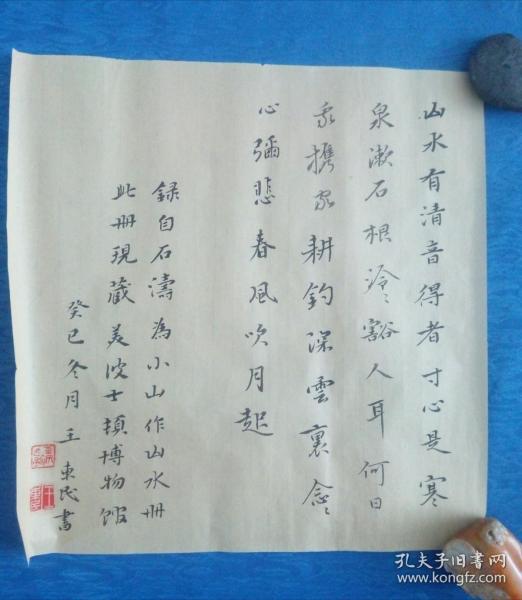 山水有清音得者寸心是寒
泉漱石根泠〻豁人耳何日
我携家耕钓深雲裏念〻
心彌悲春風吹月起
録自石濤為小山作山水册
此册現蔵美波士頓博物馆
癸巳冬月王東民書
孔夫子旧书网
kongfz.com